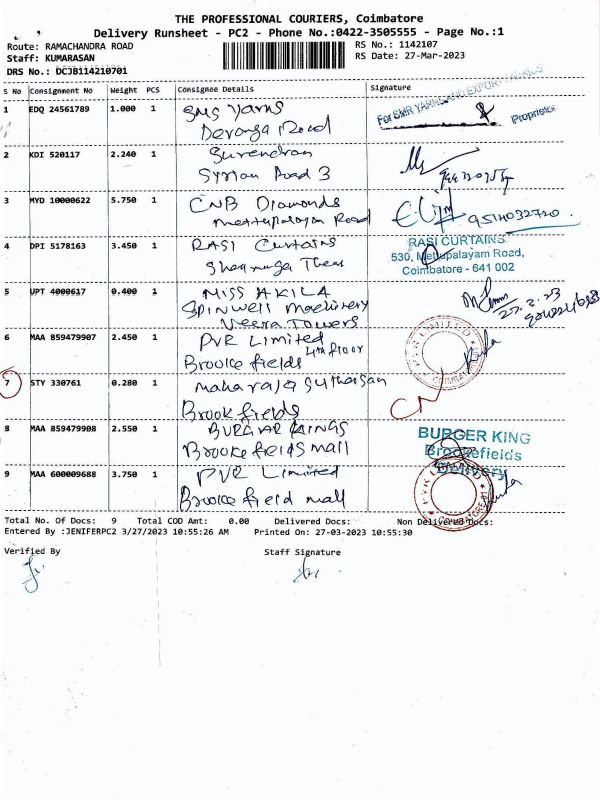 THE PROFESSIONAL COURIERS, Coimbatore
Delivery Runsheet - PC2 - Phone No.:0422-3505555 - Page No.:1
Route: RAMACHANDRA ROAD
RS No.: 1142107
Staff: KUMARASAN
RS Date: 27-Mar-2023
DRS No.: DCJB114210701
S No Consignment No Weight PCS Consignee Details Signature
1 EDQ 24561789 1.000 1 SMS Yarns
Devanga Road
For SMR YARNS AND EXPORT FABRICS
Proprietor
2 KDI 520117 2.240 1 Surendran
Syrian Road 3
3 MYD 10000622 5.750 1 CNB Diamonds
Mettupalayam Road
9514032720
4 DPI 5178163 3.450 1 RASI Curtains
Shanmuga Thear
RASI CURTAINS
530, Mettupalayam Road,
Coimbatore - 641 002
5 UPT 4000617 0.400 1 MISS AKILA
SPINWELL Machinery
Veera Towers
27.3.23
6 MAA 859479907 2.450 1 PVR Limited
4th floor
Brooke fields
PVR LIMITED
COIMBATORE
7 STY 330761 0.280 1 maharaja Suthasan
Brook fields
CN
8 MAA 859479908 2.550 1 BURGAR KINGS
Brooke fields mall
BURGER KING
Brookefields
Delivery
9 MAA 600009688 3.750 1 PVR Limited
Brooke field mall
PVR LIMITED
COIMBATORE
Total No. Of Docs: 9 Total COD Amt: 0.00 Delivered Docs: Non Delivered Docs:
Entered By :JENIFERPC2 3/27/2023 10:55:26 AM Printed On: 27-03-2023 10:55:30
Verified By Staff Signature